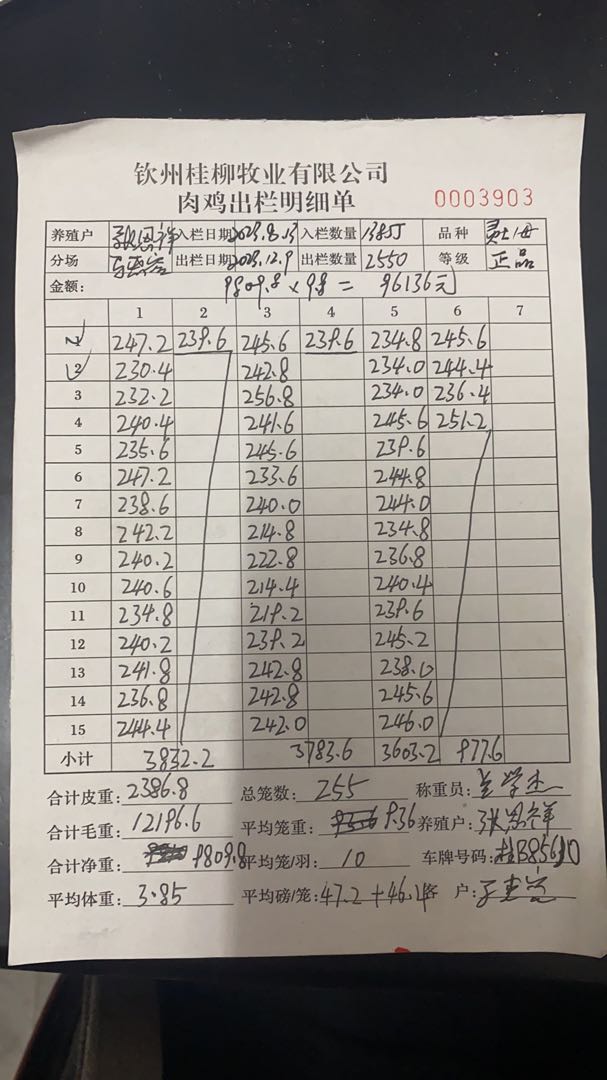 钦州桂柳牧业有限公司
肉鸡出栏明细单 0003903
养殖户 张恩祥 入栏日期 2023.8.13 入栏数量 13855 品种 灵土母
分场 出栏日期 2023.12.9 出栏数量 2550 等级 正品
金额: 9809.8 × 98 = 96136元
1 2 3 4 5 6 7
247.2 239.6 245.6 239.6 234.8 245.6
2 230.4 242.8 234.0 244.4
3 232.2 256.8 234.0 236.4
4 240.4 241.6 245.6 251.2
5 235.6 245.6 239.6
6 247.2 233.6 244.8
7 238.6 240.0 244.0
8 242.2 214.8 234.8
9 240.2 222.8 236.8
10 240.6 214.4 240.4
11 234.8 219.2 239.6
12 240.2 239.2 245.2
13 241.8 242.8 238.0
14 236.8 242.8 245.6
15 244.4 242.0 246.0
小计 3832.2 3783.6 3603.2 977.6
合计皮重: 2386.8 总笼数: 255 称重员:
合计毛重: 12196.6 平均笼重: 9.36 养殖户: 张恩祥
合计净重: 9809.8 平均笼/羽: 10 车牌号码: 桂B856
平均体重: 3.85 平均磅/笼: 47.2+46.4 客 户: